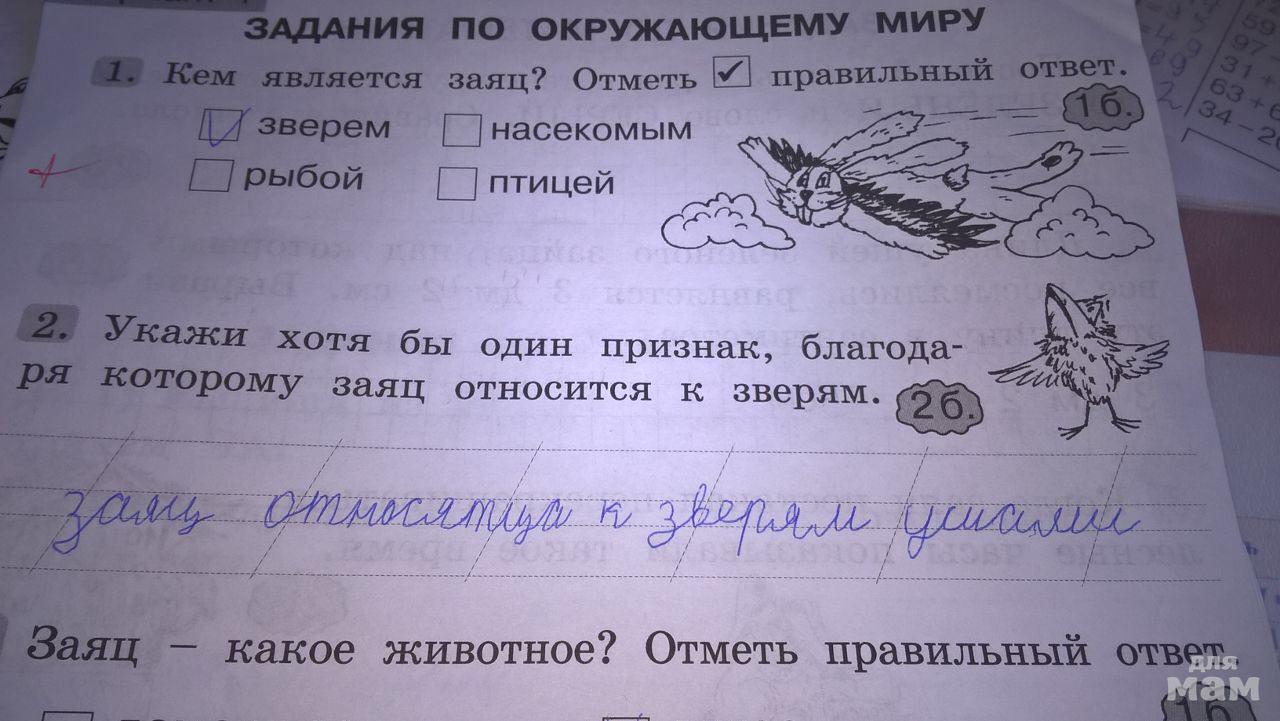 ЗАДАНИЯ ПО ОКРУЖАЮЩЕМУ МИРУ
1. Кем является заяц? Отметь ✔ правильный ответ.
1б.
зверем насекомым
рыбой птицей
2. Укажи хотя бы один признак, благода-
ря которому заяц относится к зверям. 2б.
заяц относятица к зверям ушами
Заяц – какое животное? Отметь правильный ответ.
1б
для
мам
59
97
31 +
63 + 6
34 – 2